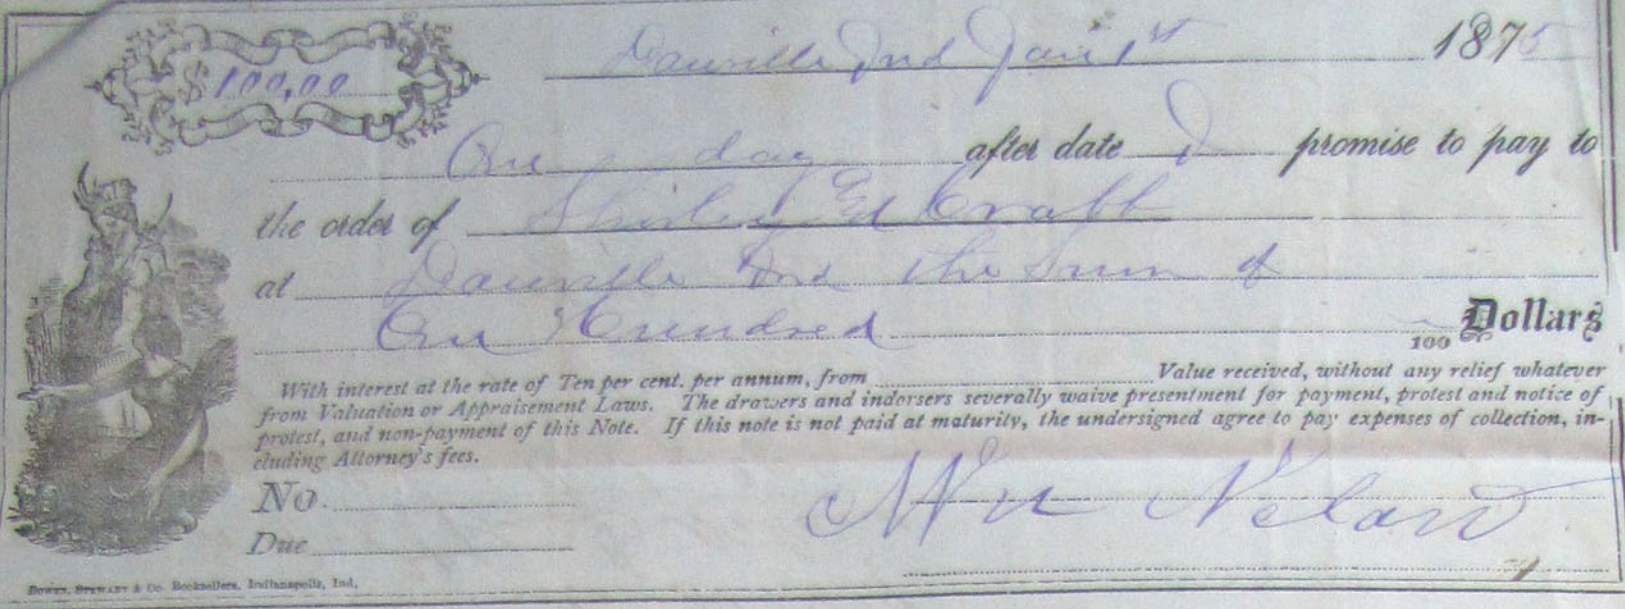 $100,00
Danville Ind Jan 1st 1875
One day after date I promise to pay to
the order of Crabb
at Danville Ind the Sum of
One Hundred
100 Dollars
With interest at the rate of Ten per cent. per annum, from Value received, without any relief whatever
from Valuation or Appraisement Laws. The drawers and indorsers severally waive presentment for payment, protest and notice of
protest, and non-payment of this Note. If this note is not paid at maturity, the undersigned agree to pay expenses of collection, in-
cluding Attorney's fees.
No.
Due
Wm
Bowen, Stewart & Co. Booksellers, Indianapolis, Ind.